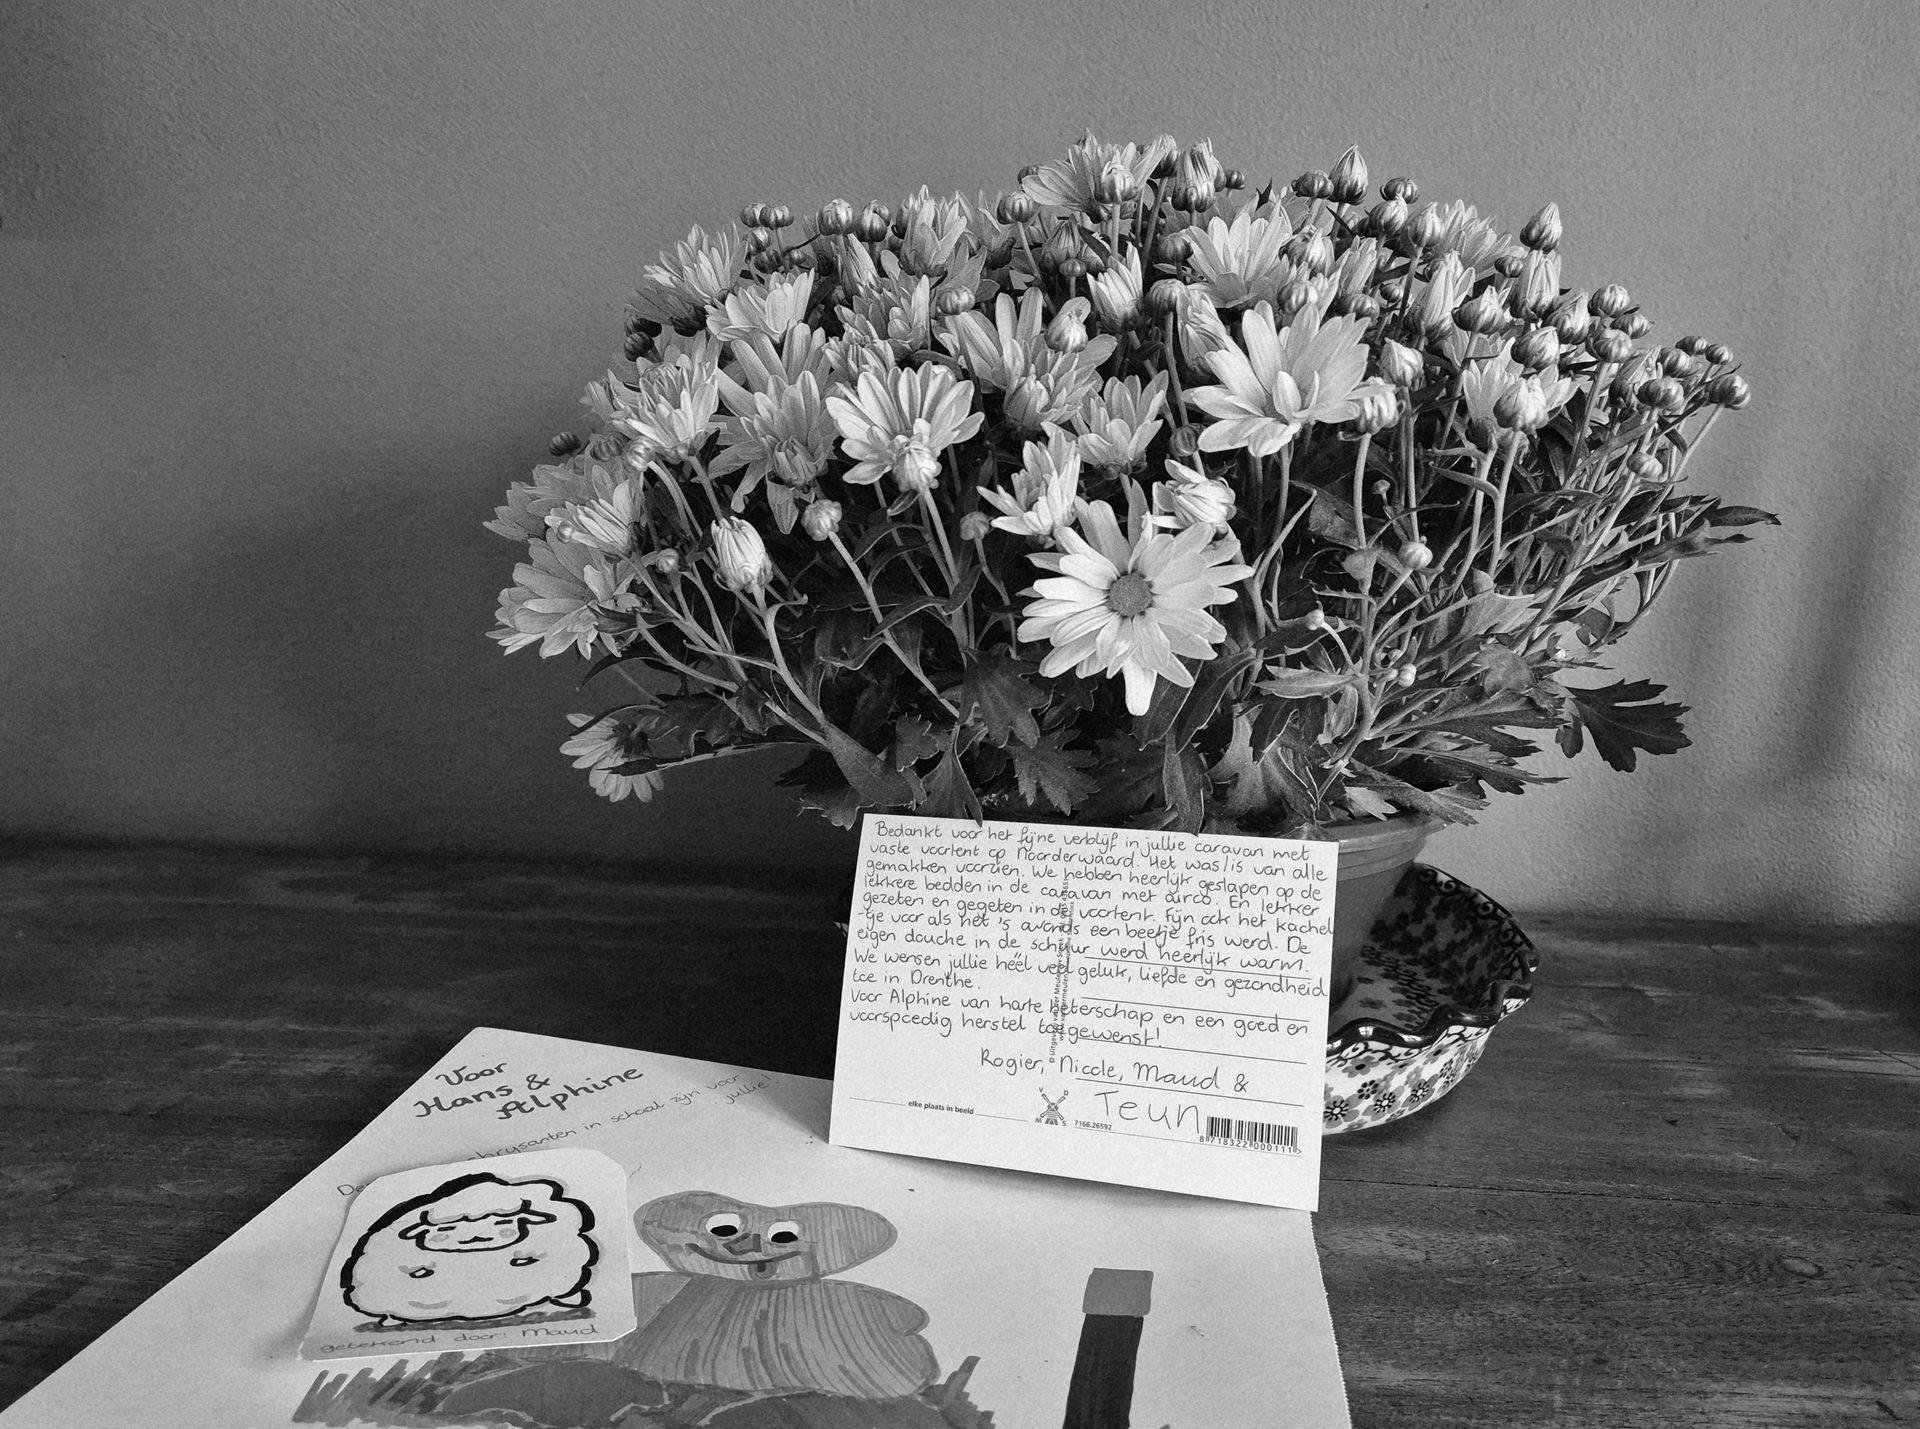 Bedankt voor het fijne verblijf in jullie caravan met
vaste voortent op Noorderwaard. Het was/is van alle
gemakken voorzien. We hebben heerlijk geslapen op de
lekkere bedden in de caravan met airco. En lekker
gezeten en gegeten in de voortent. Fijn ook het kachel
-tje voor als het 's avonds een beetje fris werd. De
eigen douche in de schuur werd heerlijk warm.
We wensen jullie héél veel geluk, liefde en gezondheid
toe in Drenthe.
Voor Alphine van harte beterschap en een goed en
voorspoedig herstel toegewenst!
Rogier, Nicole, Maud &
Teun
elke plaats in beeld
V D
M S
7166.26592
8 718322 000111
Voor
Hans &
Alphine
chrysanten in schaal zijn voor
jullie!
getekend door: Maud